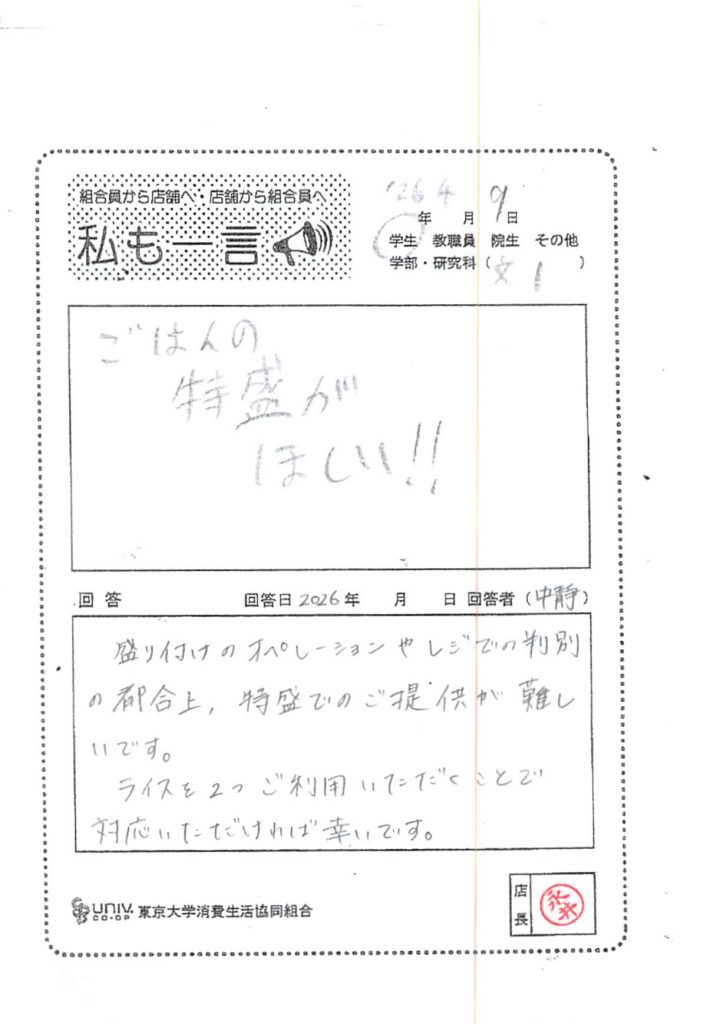 組合員から店舗へ・店舗から組合員へ
私も一言
'26 4 9
年 月 日
学生 教職員 院生 その他
学部・研究科（文1）
ごはんの
特盛が
ほしい!!
回答 回答日 2026年 月 日 回答者（中静）
盛り付けのオペレーションやレジでの判別
の都合上, 特盛でのご提供が難し
いです。
ライスを2つご利用いただくことで
対応いただければ幸いです。
UNIV.
CO-OP
東京大学消費生活協同組合
店長
永井